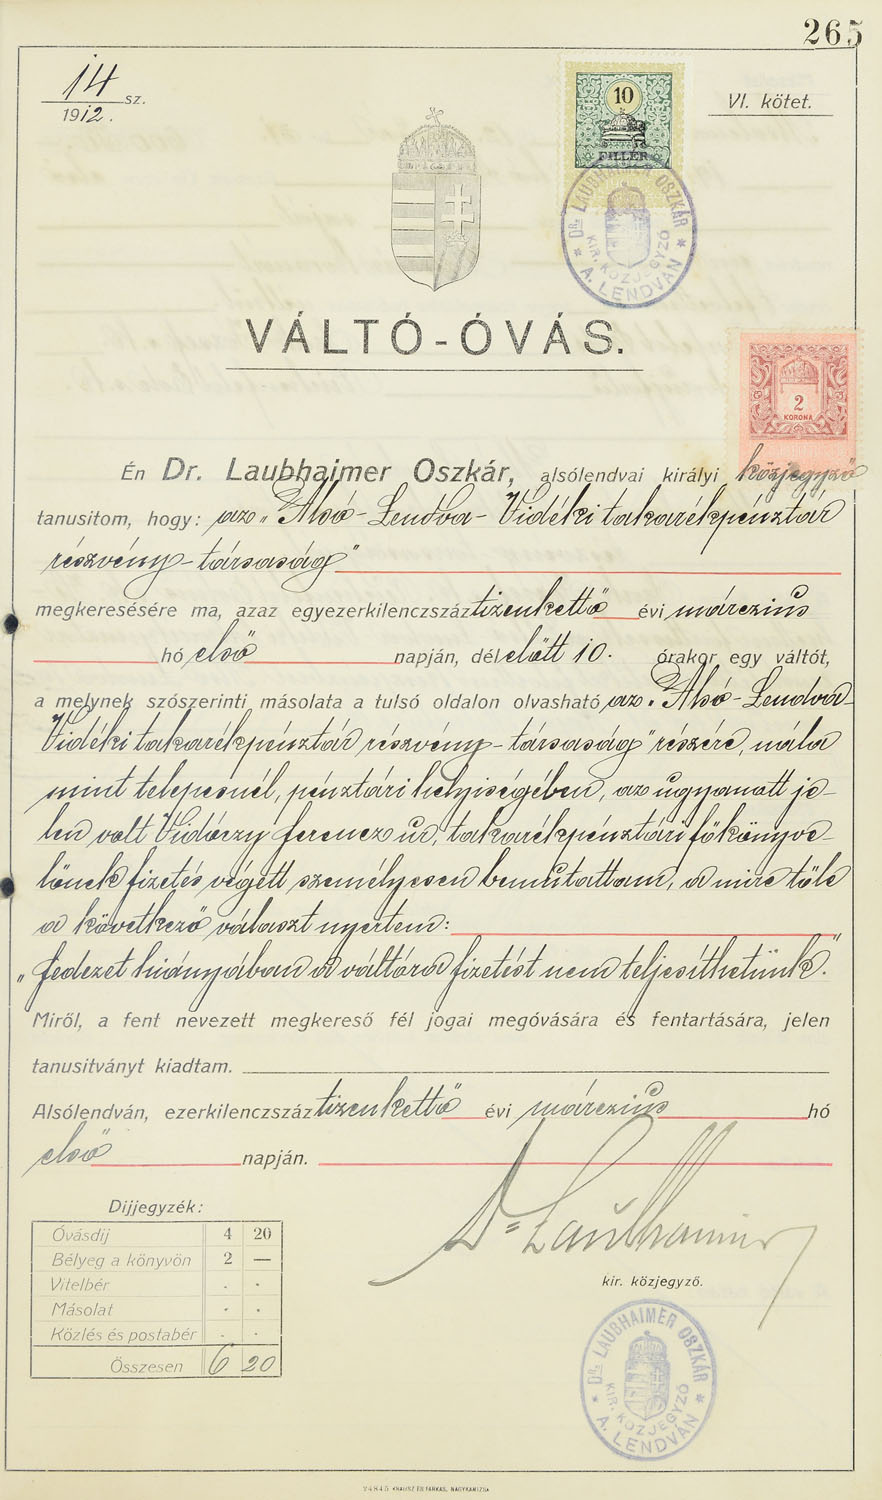 265
14 sz.
1912.
VI. kötet.
10
FILLÉR
DR. LAUBHAIMER OSZKÁR
KIR. KÖZJEGYZŐ
* A. LENDVÁN *
VÁLTÓ-ÓVÁS.
2
KORONA
Én Dr. Laubhaimer Oszkár, alsólendvai királyi közjegyző
tanusitom, hogy: az „Alsó-Lendva-Vidéki takarékpénztár
részvény-társaság"
megkeresésére ma, azaz egyezerkilenczszáz tizenkettő évi márczius
hó első napján, dél előtt 10. órakor egy váltót,
a melynek szószerinti másolata a tulsó oldalon olvasható az „Alsó-Lendva-
Vidéki takarékpénztár részvény-társaság" részére, nála
mint telepesnél, pénztári helyiségében, az ugyanott je-
len volt Vidóczy Ferencz ur, takarékpénztári főkönyve-
lőnek fizetés végett személyesen bemutattam, a mire tőle
a következő választ nyertem:
„fedezet hiányában a váltóra fizetést nem teljesíthetünk."
Miről, a fent nevezett megkereső fél jogai megóvására és fentartására, jelen
tanusitványt kiadtam.
Alsólendván, ezerkilenczszáz tizenkettő évi márczius hó
első napján.
Dr. Laubhaimer
kir. közjegyző.
Dijjegyzék:
Óvásdij 4 20
Bélyeg a könyvön 2 —
Vitelbér . .
Másolat . .
Közlés és postabér . .
Összesen 6 20
DR. LAUBHAIMER OSZKÁR
KIR. KÖZJEGYZŐ
* A. LENDVÁN *
24845 KRAUSZ ÉS FARKAS, NAGYKANIZSA